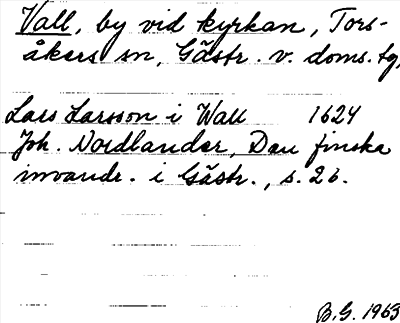 Vall, by vid kyrkan, Tors-
åkers sn, Gästr. v. doms. tg,
Lars Larsson i Wall 1624
Joh. Nordlander, Den finska
invandr. i Gästr., s. 26.
B.G. 1963